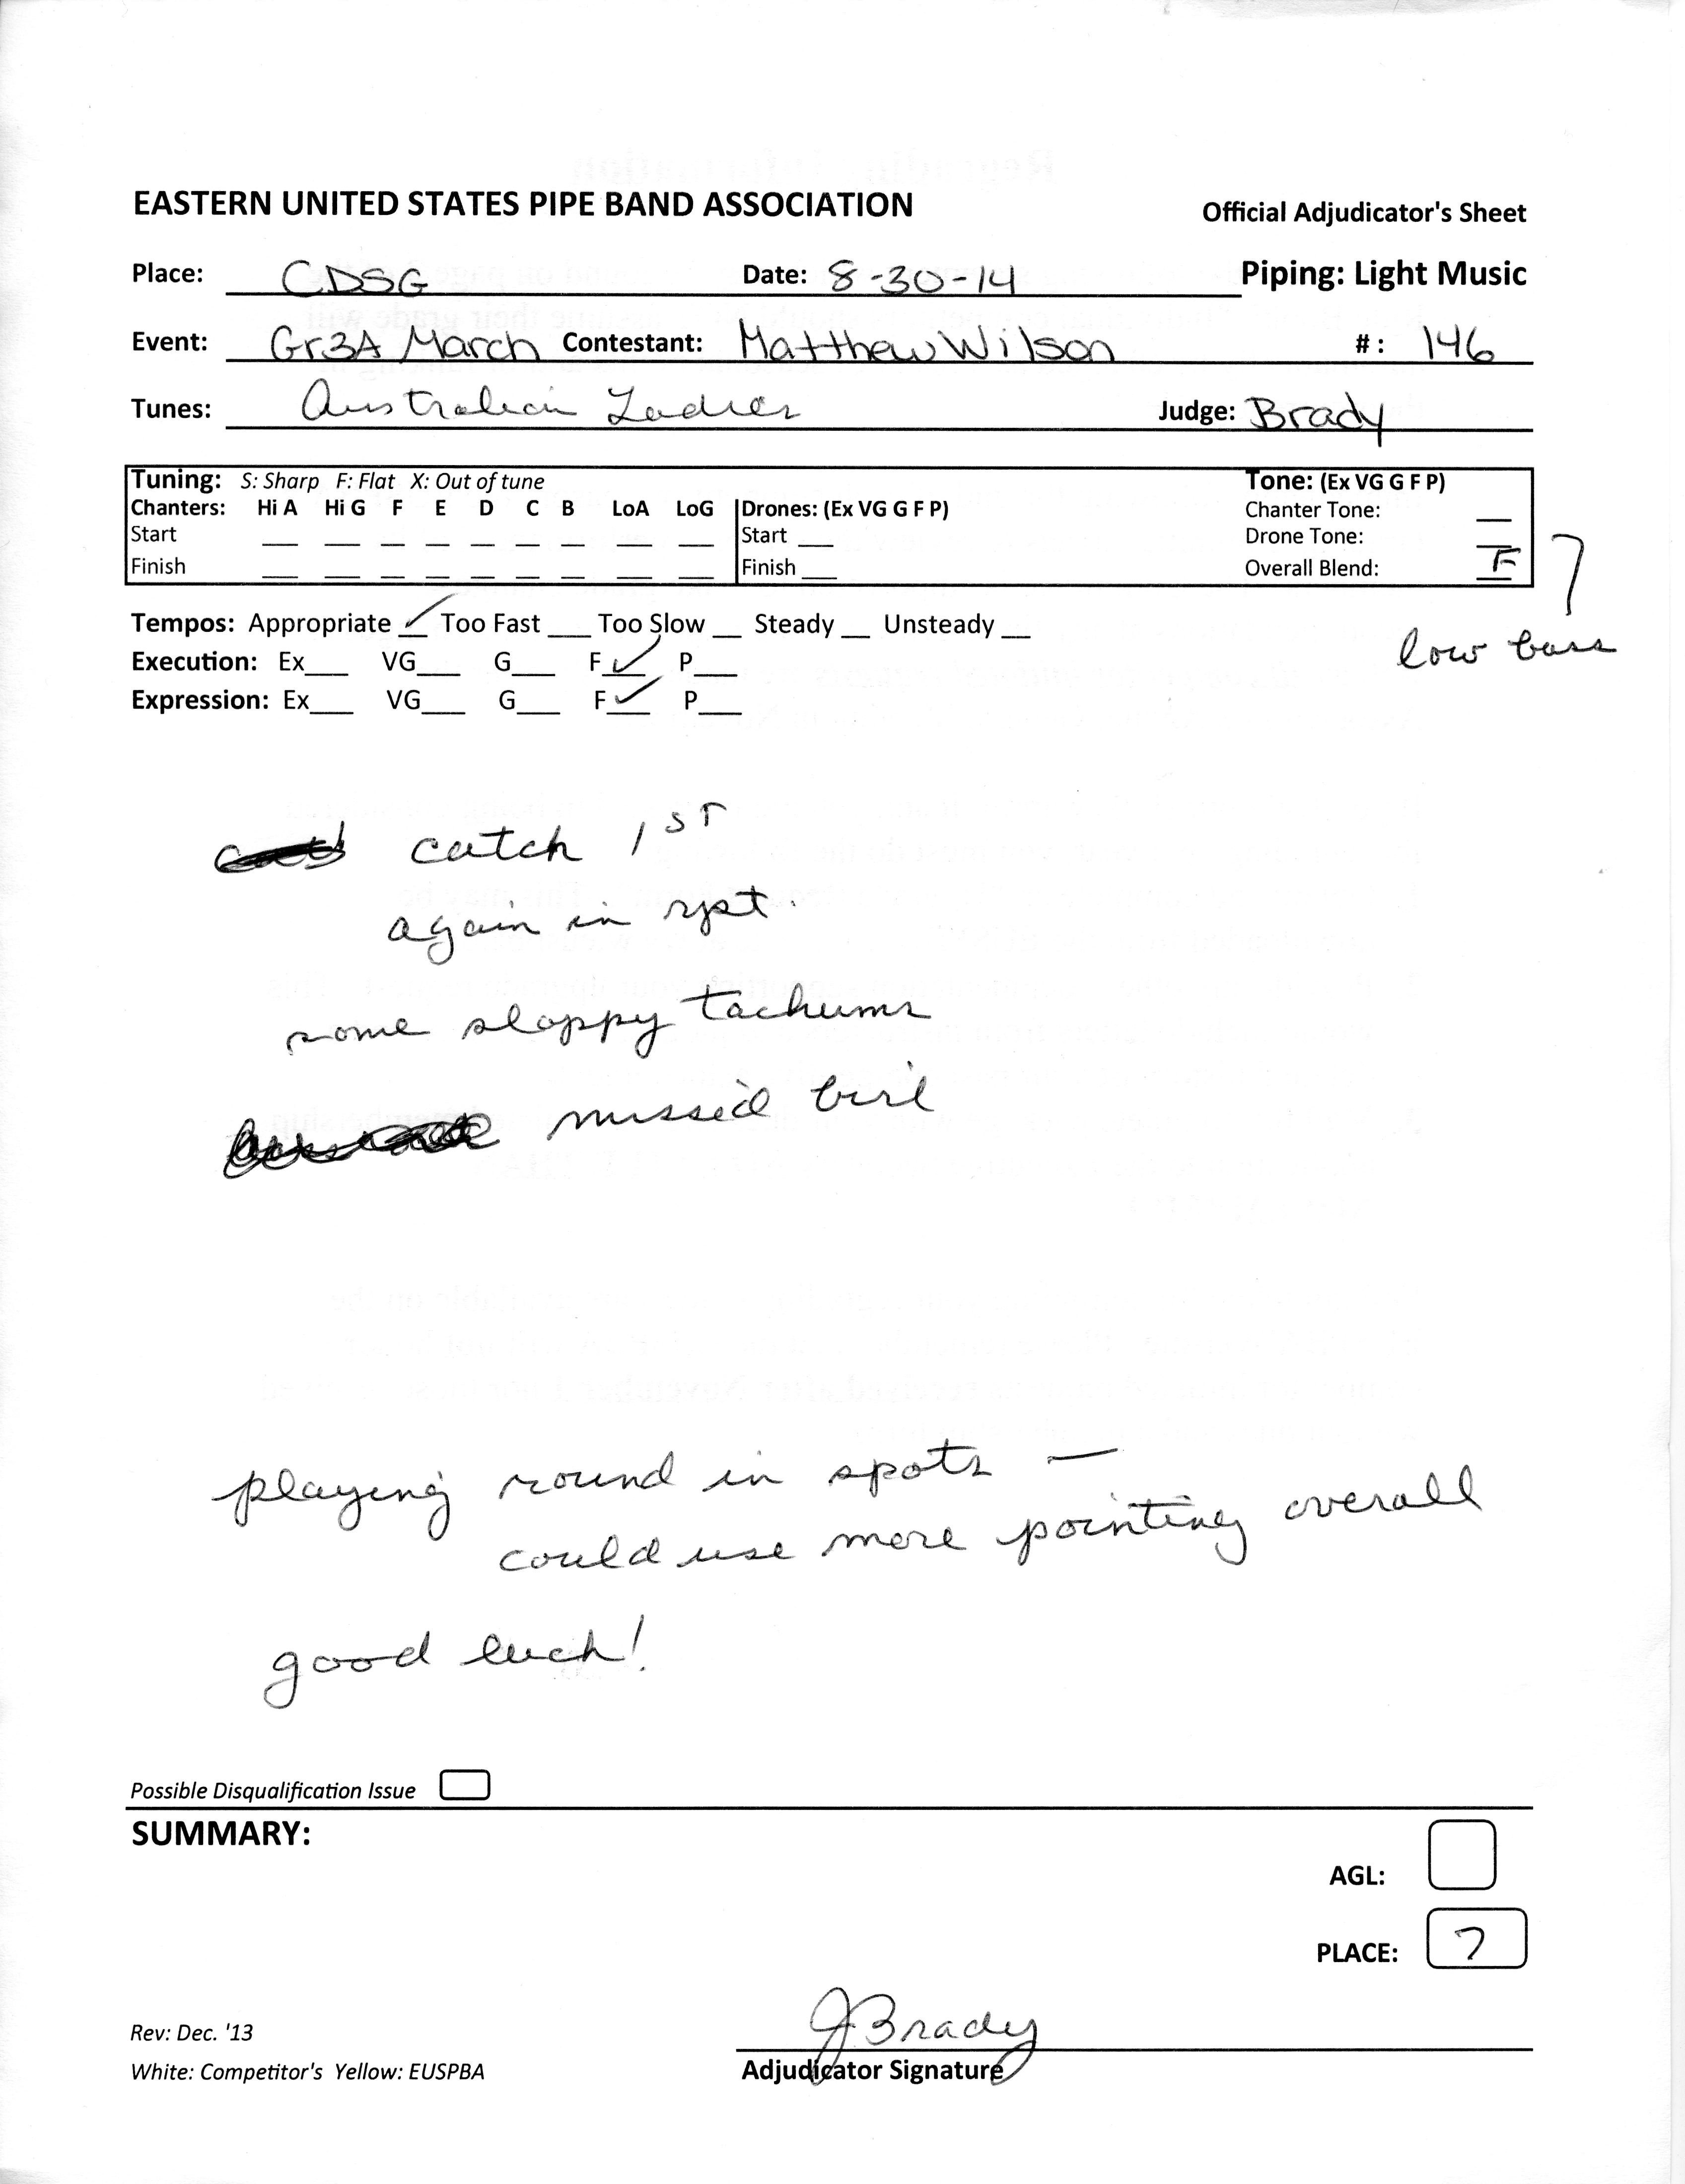 EASTERN UNITED STATES PIPE BAND ASSOCIATION
Official Adjudicator's Sheet
Place: CDSG Date: 8-30-14 Piping: Light Music
Event: Gr3A March Contestant: Matthew Wilson #: 146
Tunes: Australian Ladies Judge: Brady
Tuning: S: Sharp F: Flat X: Out of tune Tone: (Ex VG G F P)
Chanters: Hi A Hi G F E D C B LoA LoG Drones: (Ex VG G F P) Chanter Tone: __
Start __ __ __ __ __ __ __ __ __ Start __ Drone Tone: __
Finish __ __ __ __ __ __ __ __ __ Finish __ Overall Blend: F
Tempos: Appropriate ✓ Too Fast __ Too Slow __ Steady __ Unsteady __
low bass
Execution: Ex__ VG__ G__ F ✓ P__
Expression: Ex__ VG__ G__ F ✓ P__
catch 1ST
again in rpt.
some sloppy tachums
missed birl
playing round in spots —
could use more pointing overall
good luck!
Possible Disqualification Issue
SUMMARY:
AGL:
PLACE: 7
Rev: Dec. '13
JBrady
White: Competitor's Yellow: EUSPBA
Adjudicator Signature